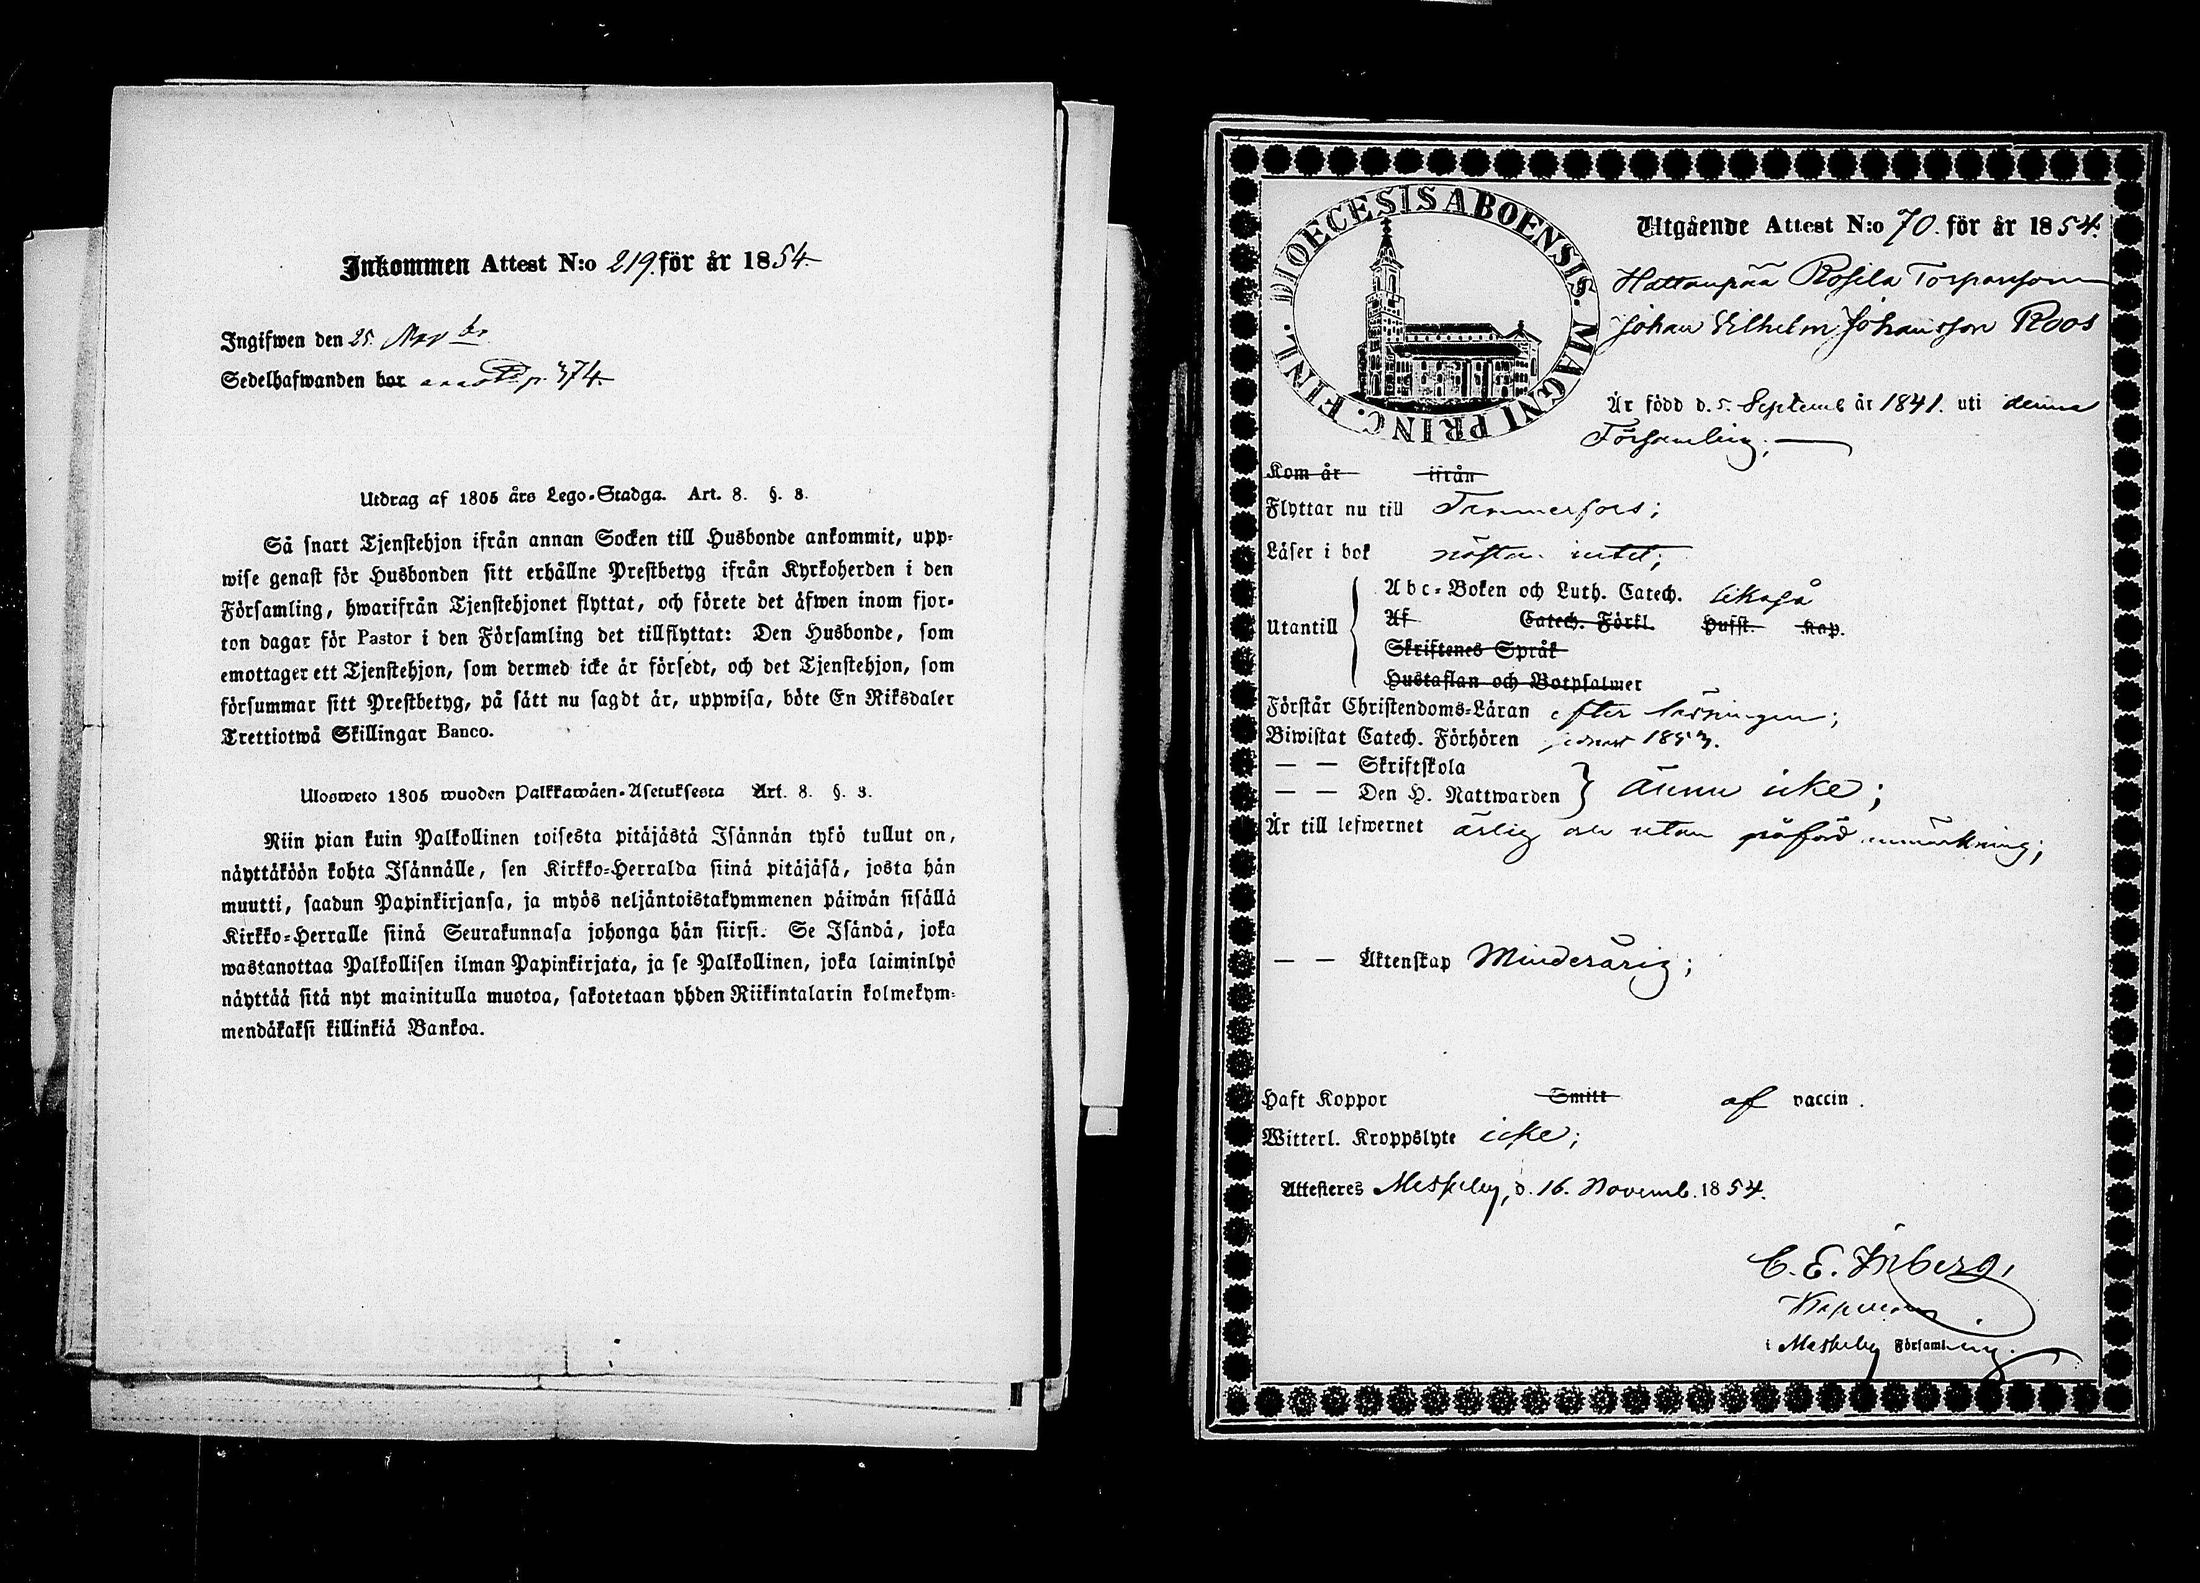 Inkommen Attest N:o 219. för år 1854.
Ingifwen den 25. Novbr
Sedelhafwanden bor annot. p. 374.
Utdrag af 1805 års Lego-Stadga. Art. 8. §. 8.
Så snart Tjenstehjon ifrån annan Socken till Husbonde ankommit, upp-
wise genast för Husbonden sitt erhållne Prestbetyg ifrån Kyrkoherden i den
Församling, hwarifrån Tjenstehjonet flyttat, och förete det äfwen inom fjor-
ton dagar för Pastor i den Församling det tillflyttat: Den Husbonde, som
emottager ett Tjenstehjon, som dermed icke är försedt, och det Tjenstehjon, som
försummar sitt Prestbetyg, på sätt nu sagdt är, uppwisa, böte En Riksdaler
Trettiotwå Skillingar Banco.
Ulosweto 1805 wuoden Palkkawäen-Asetuksesta Art. 8. §. 8.
Niin pian kuin Palkollinen toisesta pitäjästä Isännän tykö tullut on,
näyttäköön kohta Isännälle, sen Kirkko-Herralda siinä pitäjäsä, josta hän
muutti, saadun Papinkirjansa, ja myös neljäntoistakymmenen päiwän sisällä
Kirkko-Herralle siinä Seurakunnasa johonga hän siirsi. Se Isändä, joka
wastanottaa Palkollisen ilman Papinkirjata, ja se Palkollinen, joka laiminlyö
näyttää sitä nyt mainitulla muotoa, sakotetaan yhden Riikintalarin kolmekym-
mendäkaksi killinkiä Bankoa.
DIOECESIS ABOENSIS. MAGNI PRINC. FINL.
Utgående Attest N:o 70. för år 1854.
Hattanpää Rosila Torparson
Johan Vilhelm Johansson Roos
Är född d. 5. Septemb år 1841. uti denna
Församling;
Kom år ifrån
Flyttar nu till Tammerfors;
Läser i bok nästan intet;
Utantill
Abc-Boken och Luth. Catech. likaså
Af Catech. Förkl. Hufst. Kap.
Skriftenes Språk
Hustaflan och Botpsalmer
Förstår Christendoms-Läran efter läsningen;
Biwistat Catech. Förhören 1853.
— — Skriftskola
— — Den H. Nattwarden ännu icke;
Är till lefwernet ärlig och utan anmärkning;
— — Äktenskap Minderårig;
Haft Koppor Smitt af vaccin.
Witterl. Kroppslyte icke;
Attesteres Messuby, d. 16. Novemb. 1854.
C. E. Inberg,
Kapellan
i Messuby Församling.